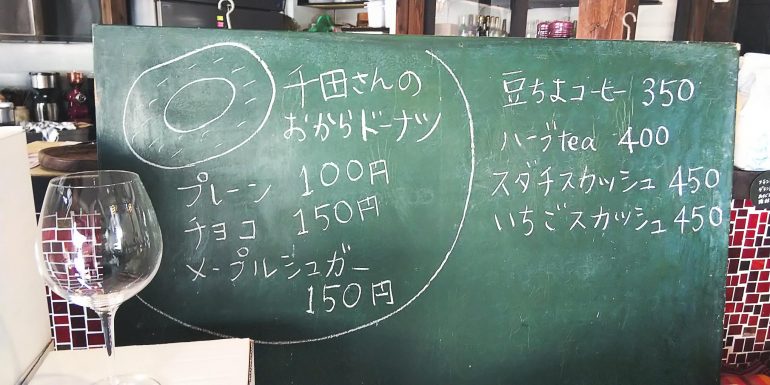 千田さんの
おからドーナツ
プレーン 100円
チョコ 150円
メープルシュガー
150円
豆ちよコーヒー 350
ハーブtea 400
スダチスカッシュ 450
いちごスカッシュ 450